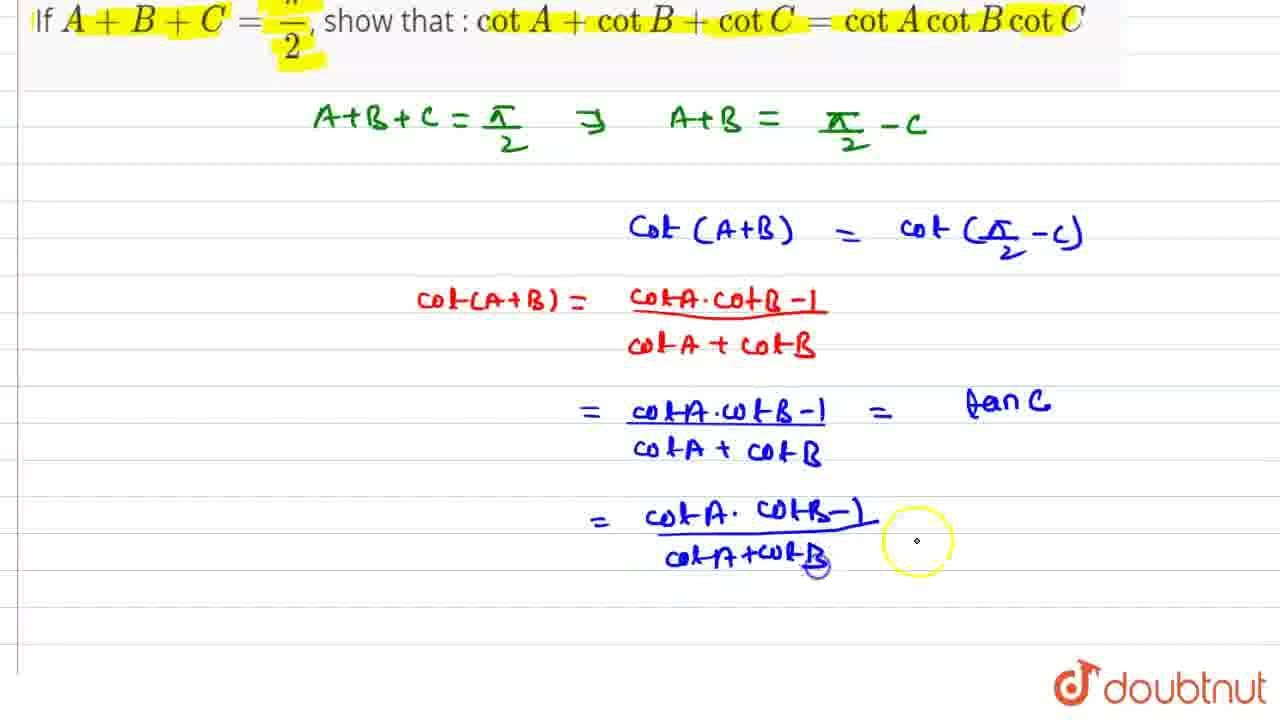 If A + B + C = π/2, show that : cot A + cot B + cot C = cot A cot B cot C
A+B+C = π/2 ⇒ A+B = π/2 - C
Cot (A+B) = cot (π/2 - C)
cot(A+B) = (cotA·cotB-1)/(cotA + cotB)
= (cotA·cotB-1)/(cotA + cotB) = tan C
= (cotA· cotB-1)/(cotA+cotB)
doubtnut